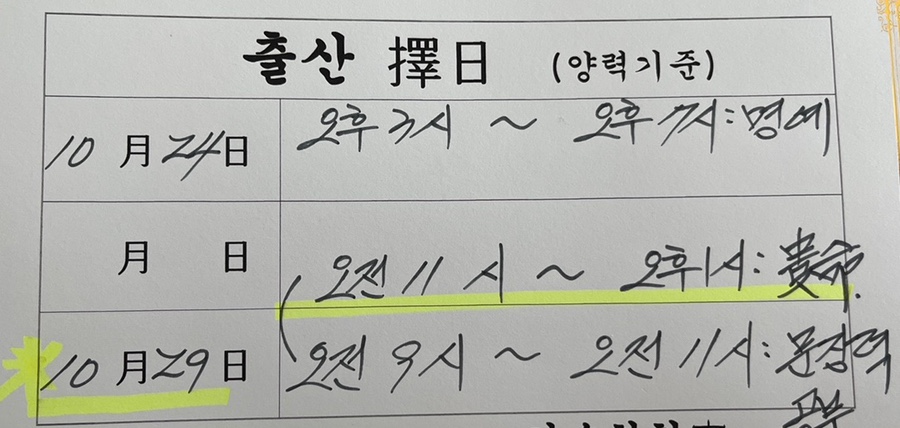 출산 擇日 (양력기준)
10 月 24 日 오후 3시 ~ 오후 7시: 명예
月 日 오전 11시 ~ 오후 1시: 貴命.
10 月 29 日 오전 9시 ~ 오전 11시: 문장력